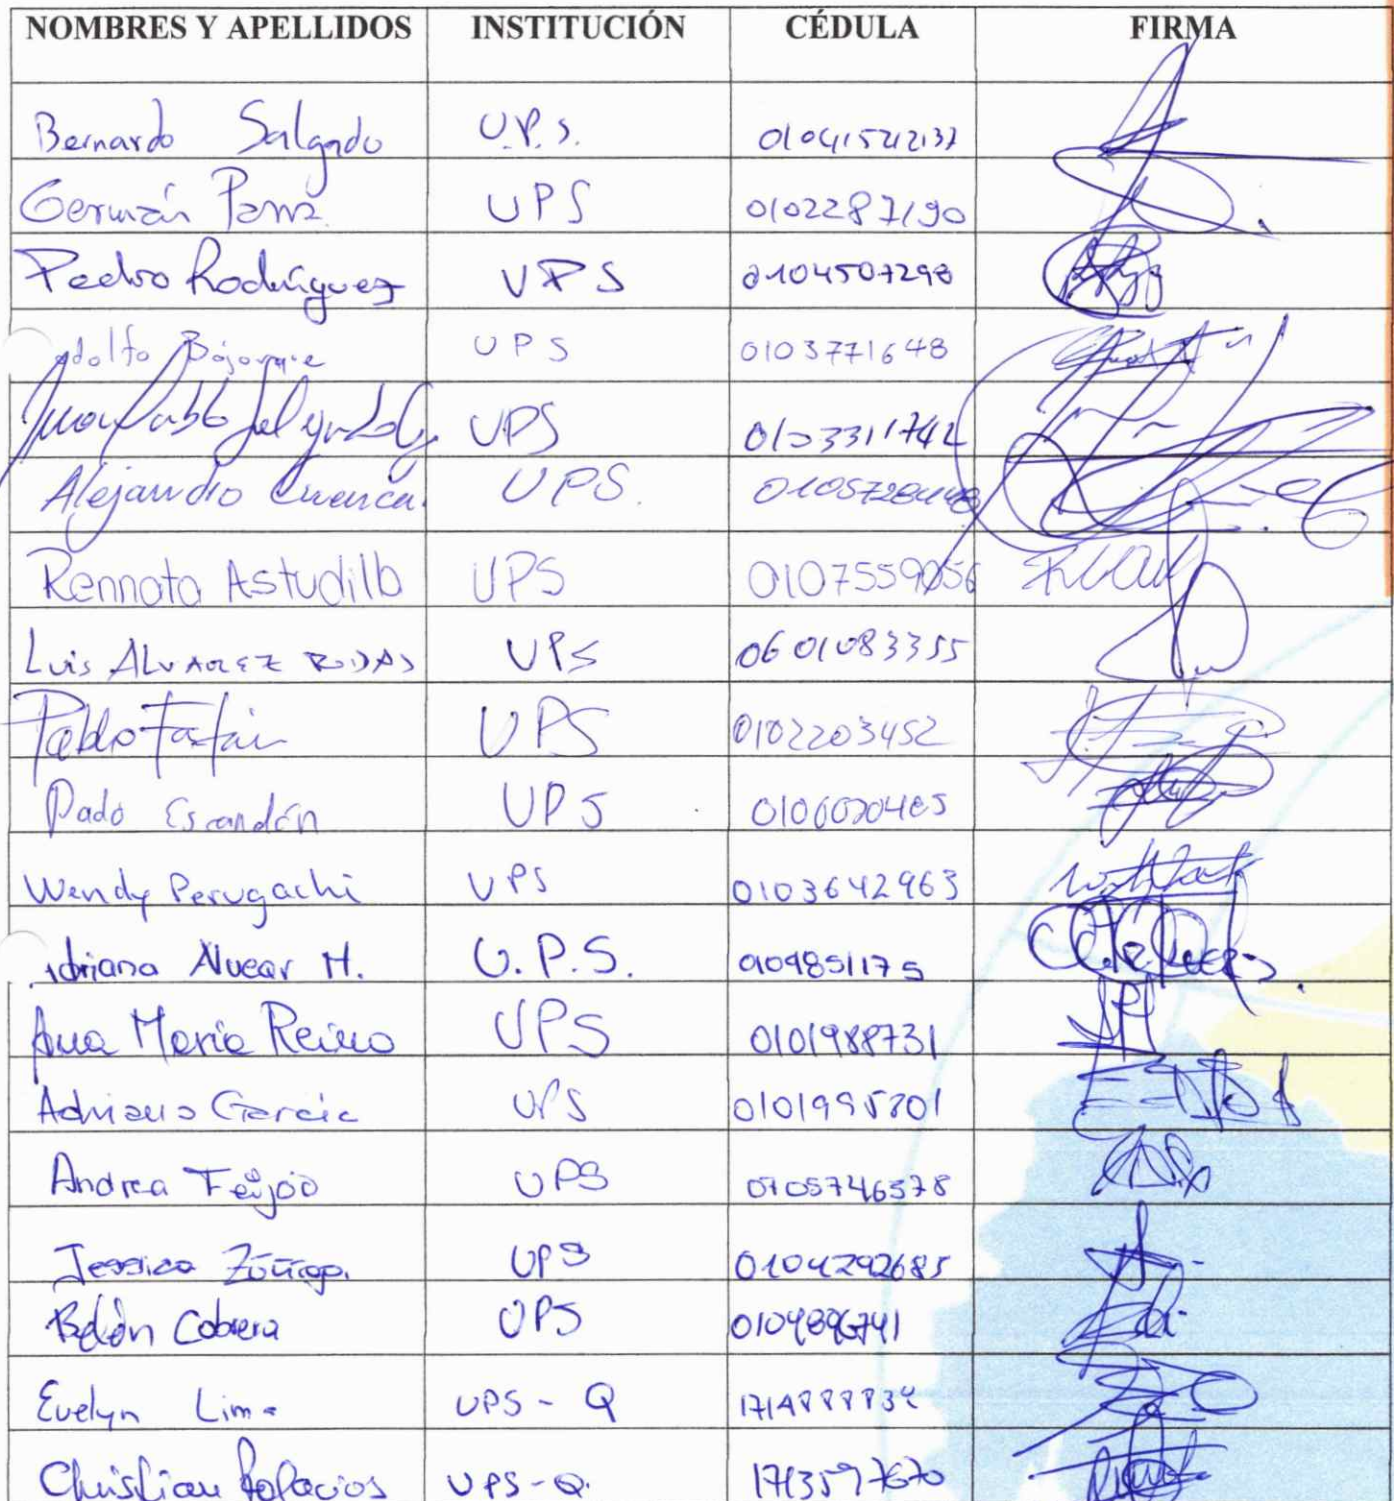 NOMBRES Y APELLIDOS INSTITUCIÓN CÉDULA FIRMA
Bernardo Salgado U.P.S.
Germán Parra UPS 0102287190
Pedro Rodríguez UPS 0104507298
Adolfo Bojorque UPS 0103771648
Juan Pablo UPS 0103311742
Alejandro Cuenca. UPS.
Rennato Astudillo UPS 0107559056
Luis ALVAREZ RODAS UPS 0601083355
Pablo Farfán UPS 0102203452
Escandón UPS
Wendy Perugachi UPS 0103642963
Adriana Alvear M. U.P.S. 0104851175
Ana María Reino UPS 0101988731
Adriana García UPS
Andrea Feijóo UPS
Jessica Zúñiga. UPS 0104292685
Belén Cabrera UPS
Evelyn Lima UPS - Q
Christian Palacios UPS-Q. 1713597670